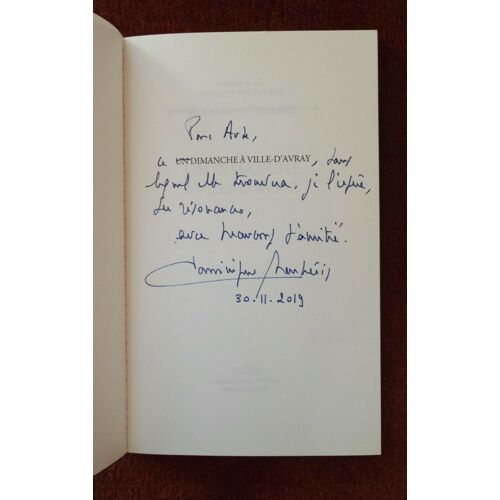 Pour
ce UN DIMANCHE À VILLE-D'AVRAY, dans
lequel elle trouvera, je l'espère,
des résonances,
avec beaucoup d'amitié.
Dominique Barbéris
30.11.2019